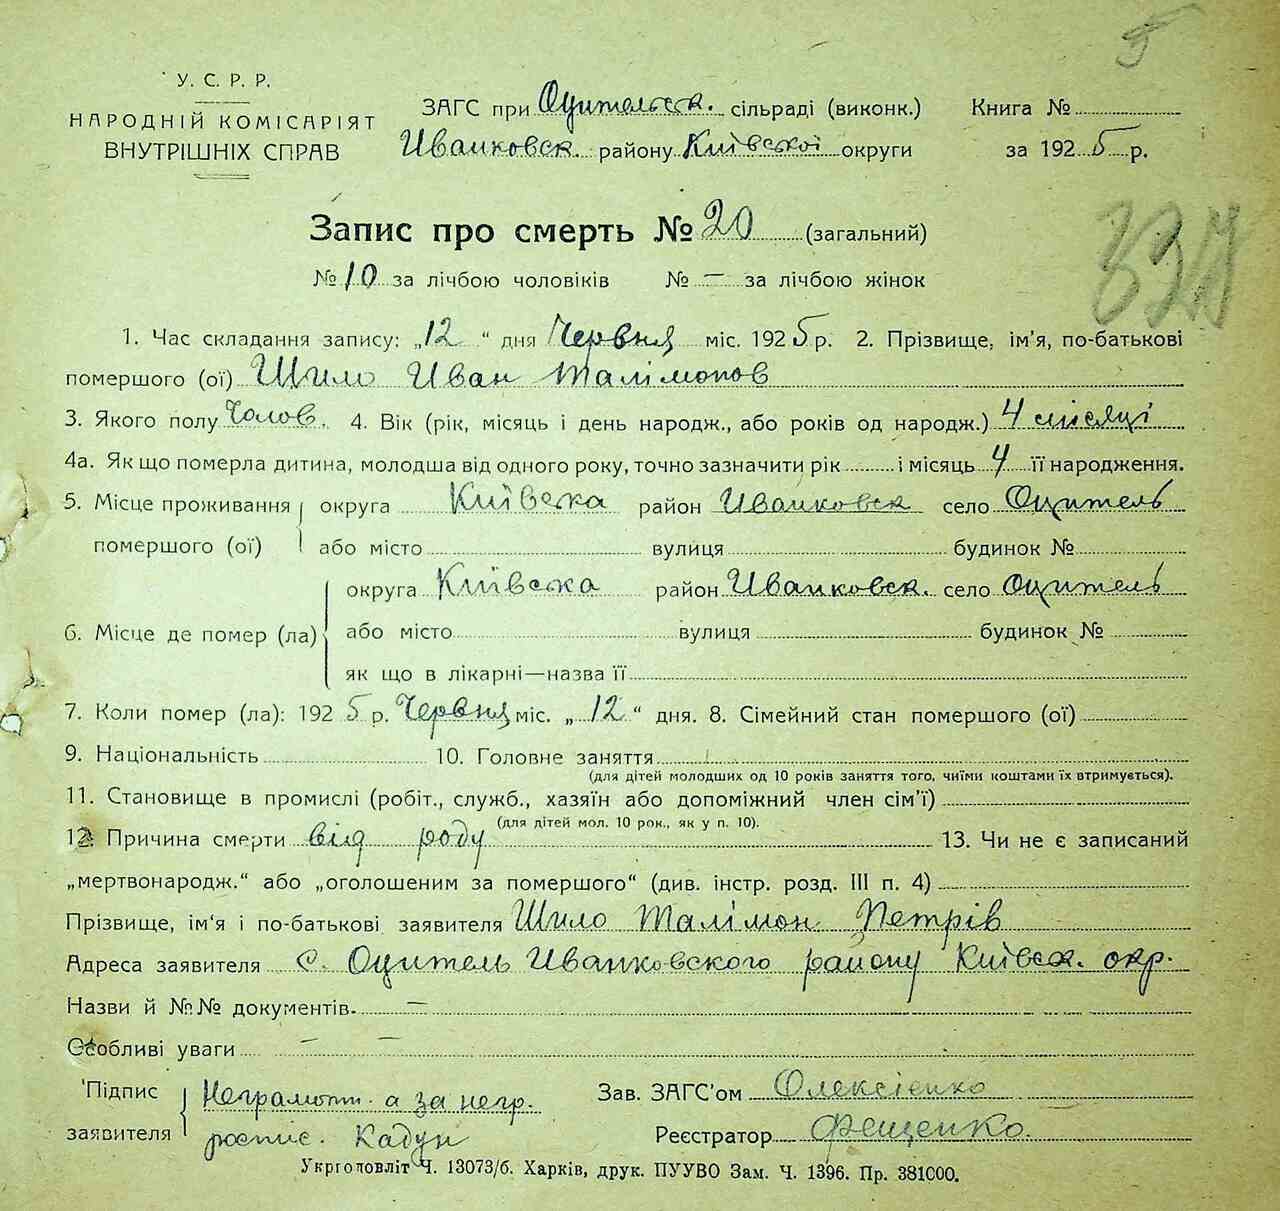 5
У. С. Р. Р.
НАРОДНІЙ КОМІСАРІЯТ
ВНУТРІШНІХ СПРАВ
ЗАГС при Оцительськ. сільраді (виконк.)
Иванковск. району Київської округи
Книга №
за 1925 р.
Запис про смерть № 20 (загальний)
№ 10 за лічбою чоловіків № — за лічбою жінок
1. Час складання запису: „12“ дня Червня міс. 1925 р. 2. Прізвище, ім'я, по-батькові
помершого (ої) Шило Иван Талімонов
3. Якого полу Чолов. 4. Вік (рік, місяць і день народж., або років од народж.) 4 місяці
4а. Як що померла дитина, молодша від одного року, точно зазначити рік і місяць 4 її народження.
5. Місце проживання округа Київська район Иванковск село Оцитель
помершого (ої) або місто вулиця будинок №
округа Київська район Иванковск. село Оцитель
6. Місце де помер (ла) або місто вулиця будинок №
як що в лікарні—назва її
7. Коли помер (ла): 1925 р. Червня міс. „12“ дня. 8. Сімейний стан помершого (ої)
9. Національність 10. Головне заняття
(для дітей молодших од 10 років заняття того, чиїми коштами їх втримується).
11. Становище в промислі (робіт., служб., хазяїн або допоміжний член сім'ї)
(для дітей мол. 10 рок., як у п. 10).
12. Причина смерти від роду 13. Чи не є записаний
„мертвонародж.“ або „оголошеним за помершого“ (див. інстр. розд. III п. 4)
Прізвище, ім'я і по-батькові заявителя Шило Талімон Петрів
Адреса заявителя С. Оцитель Иванковского району Київск. окр.
Назви й №№ документів. —
Особливі уваги — —
Підпис
заявителя
Неграмотн. а за негр.
роспис. Кадун
Зав. ЗАГС'ом Олексієнко
Реєстратор Фещенко.
Укрголовліт Ч. 13073/б. Харків, друк. ПУУВО Зам. Ч. 1396. Пр. 381000.